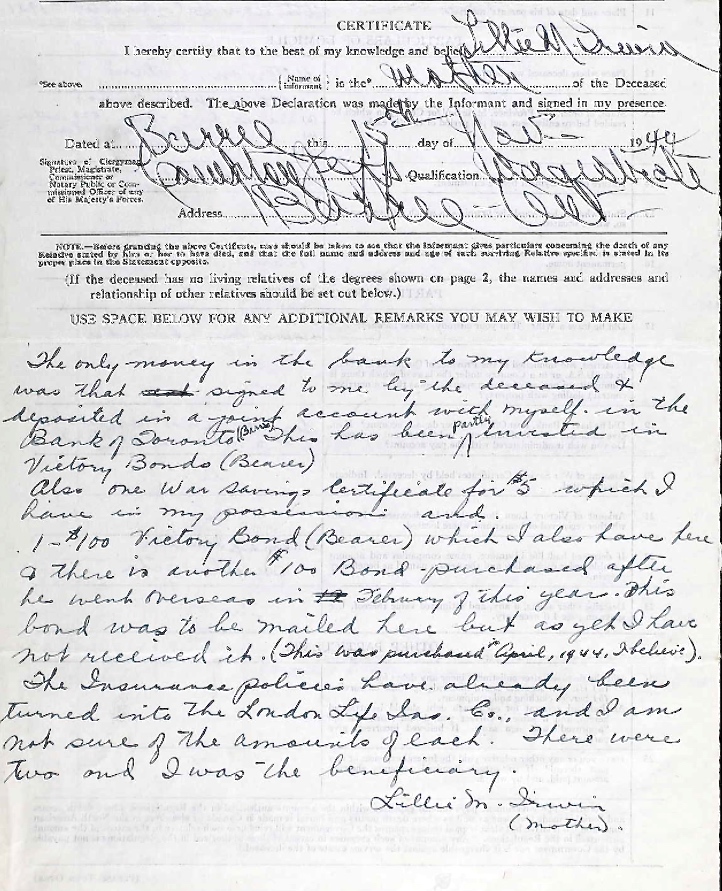 CERTIFICATE
I hereby certify that to the best of my knowledge and belief Lillie M. Irwin
*See above. {Name of informant} is the* mother of the Deceased
above described. The above Declaration was made by the Informant and signed in my presence.
Dated at Barrie this 15th day of Nov. 1944
Signature of Clergyman,
Priest, Magistrate,
Commissioner or
Notary Public or Com-
missioned Officer of any
of His Majesty's Forces.
Qualification Magistrate
Address Barrie - Ont
NOTE.—Before granting the above Certificate, care should be taken to see that the Informant gives particulars concerning the death of any
Relative stated by him or her to have died, and that the full name and address and age of each surviving Relative specified is stated in its
proper place in the Statement opposite.
(If the deceased has no living relatives of the degrees shown on page 2, the names and addresses and
relationship of other relatives should be set out below.)
USE SPACE BELOW FOR ANY ADDITIONAL REMARKS YOU MAY WISH TO MAKE
The only money in the bank to my knowledge
was that signed to me by the deceased &
deposited in a joint account with myself in the
Bank of Toronto (Barrie) This has been partly invested in
Victory Bonds (Bearer)
Also one War Savings Certificate for $5 which I
have in my possession and.
1-$100 Victory Bond (Bearer) which I also have here
& there is another $100 Bond purchased after
he went overseas in Febuary of this year. This
bond was to be mailed here but as yet I have
not received it. (This was purchased in April, 1944, I believe).
The Insurance policies have already been
turned into the London Life Ins. Co., and I am
not sure of the amounts of each. There were
two and I was the beneficiary.
Lillie M. Irwin
(Mother).